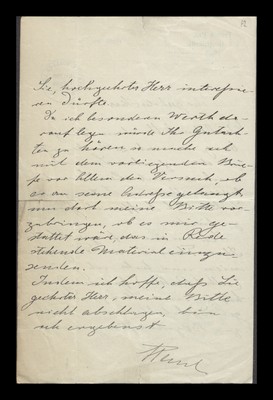 Sie, hochgeehrter Herr interessie-
ren dürfte.
Da ich besonderen Werth da-
rauf legen würde Ihr Gutach-
ten zu hören so mache ich
mit dem vorliegenden Brie-
fe vor allem den Versuch, ob
es an seine Adresse gelangt
um dort meine Bitte vor-
zubringen, ob es mir ge-
stattet wäre, das in Rede
stehende Material einzu-
senden.
Indem ich hoffe, dass Sie
geehrter Herr, meine Bitte
nicht abschlagen, bin
ich ergebenst